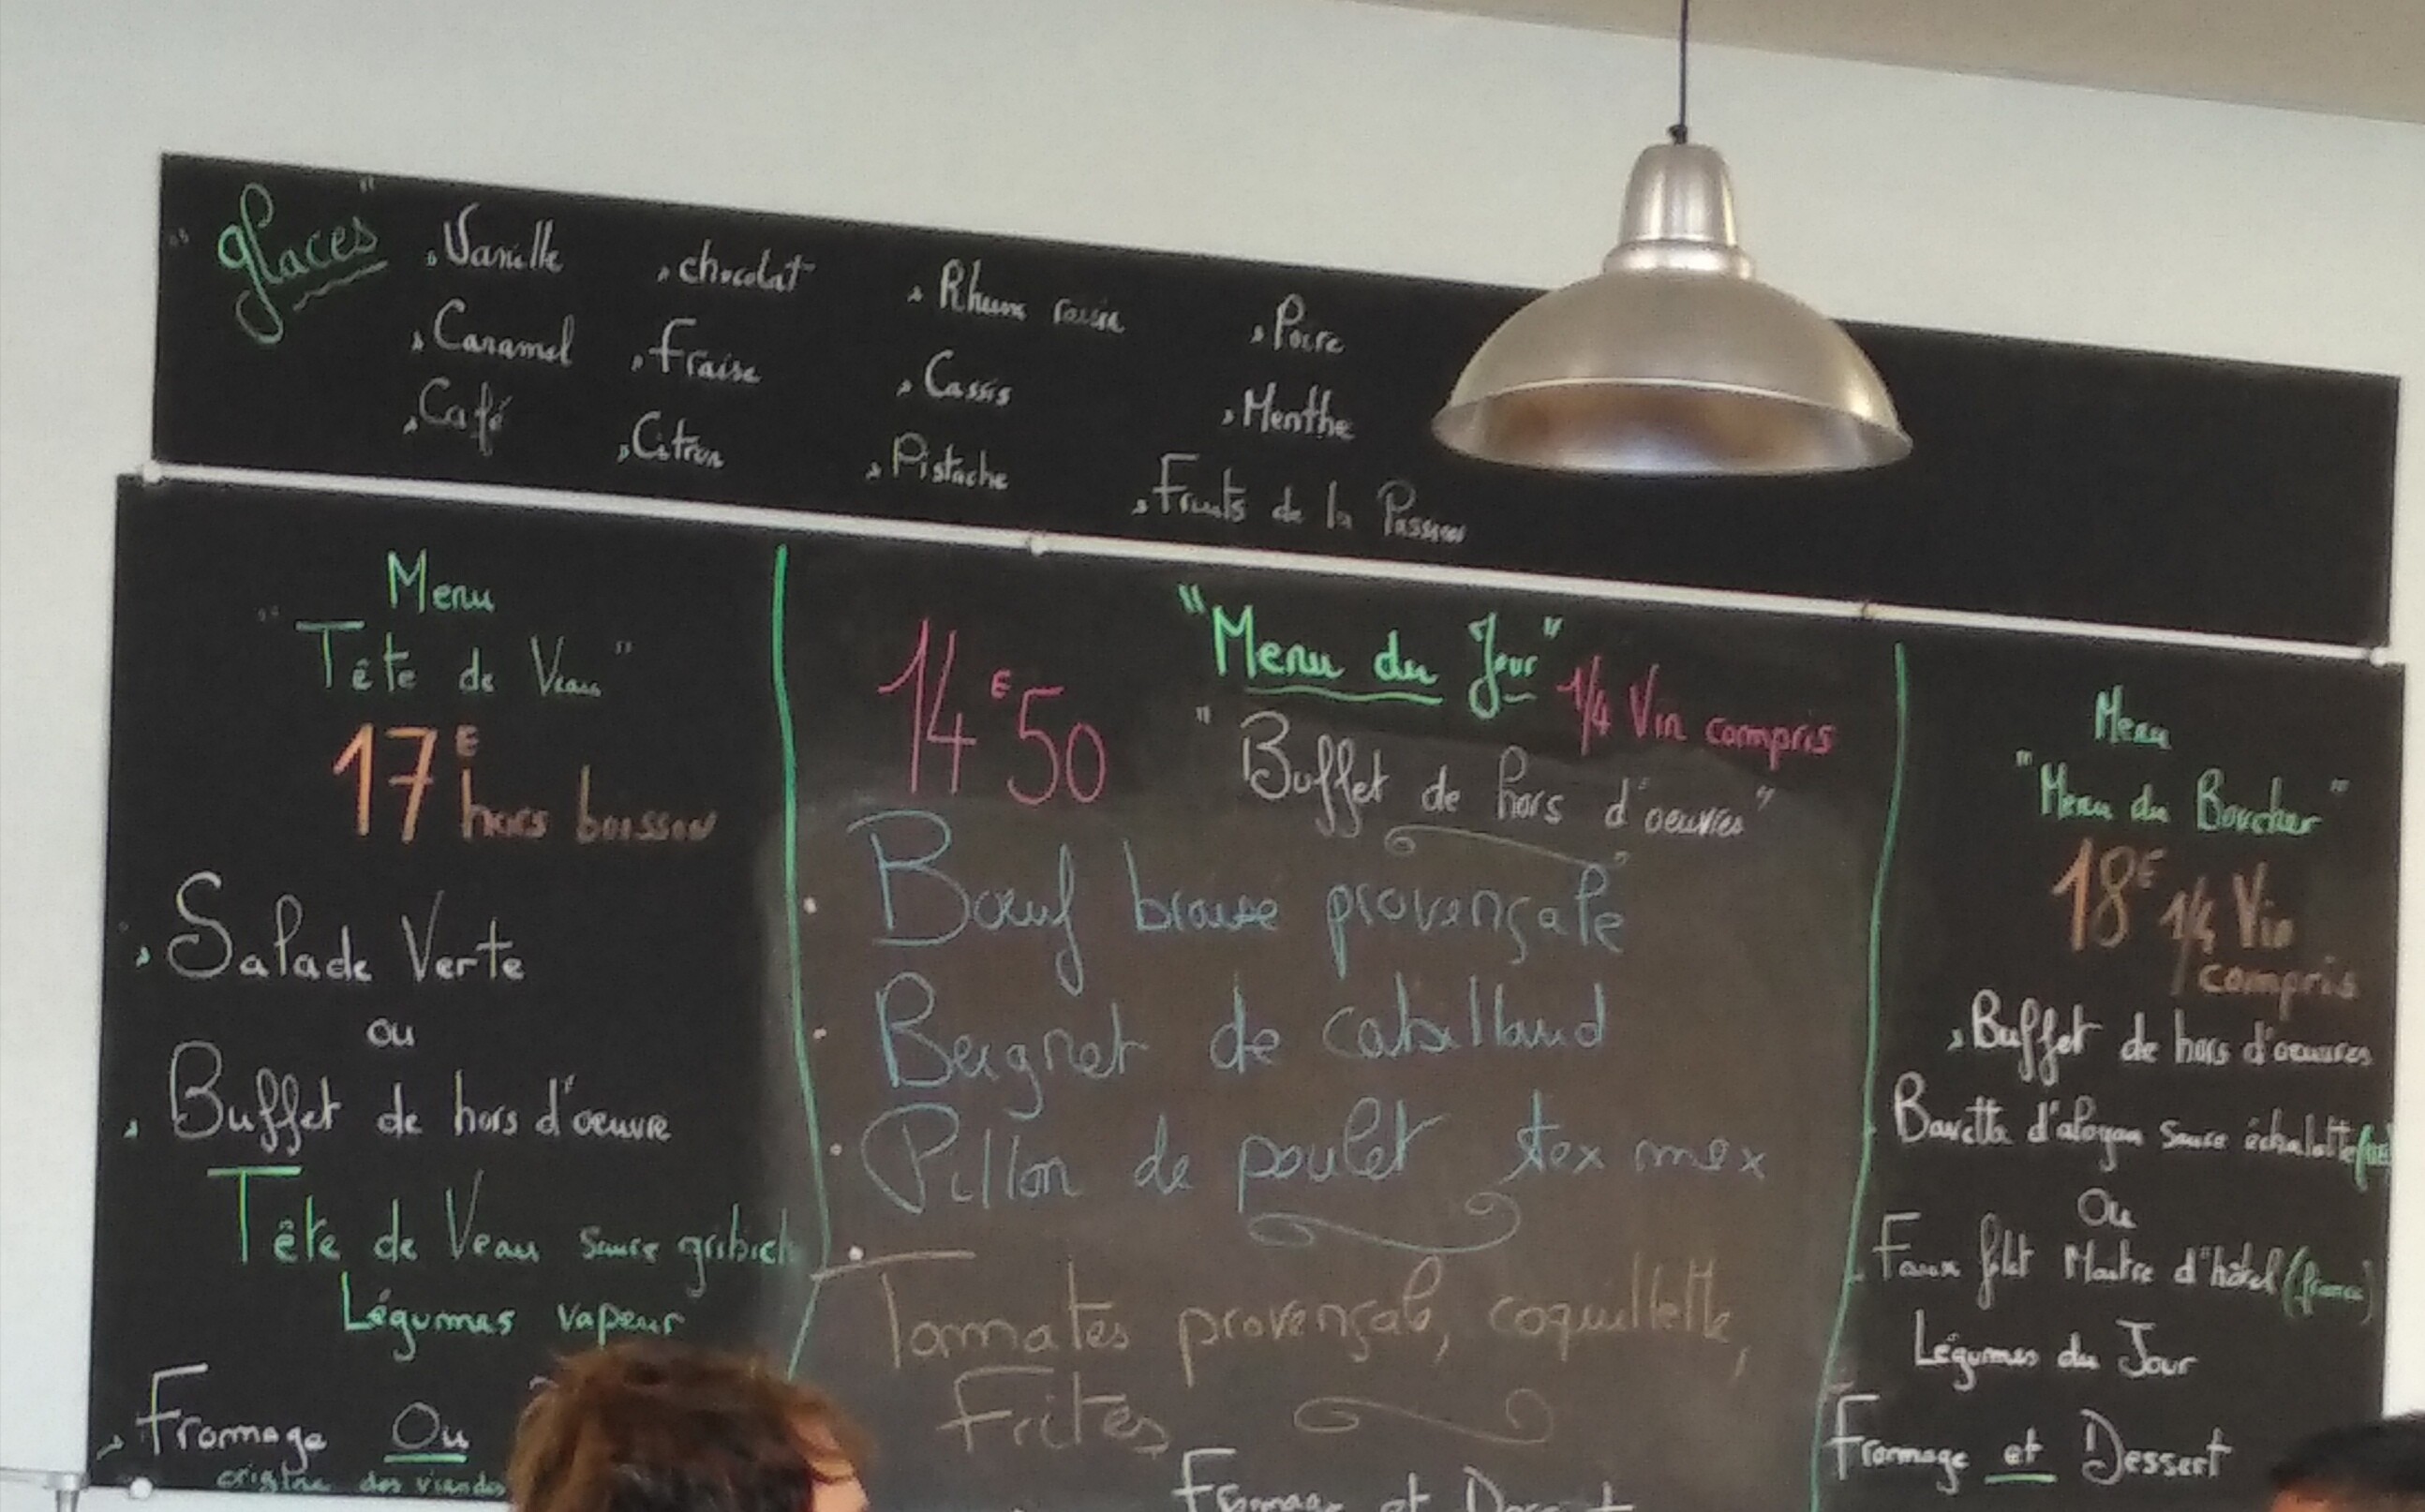 "glaces"
, Vanille , chocolat , Rhum raisin , Poire
, Caramel , Fraise , Cassis , Menthe
, Café , Citron , Pistache , Fruits de la Passion
Menu
"Tête de Veau"
17E
hors boisson
, Salade Verte
ou
, Buffet de hors d'oeuvre
Tête de Veau sauce gribich
Légumes vapeur
, Fromage Ou
origine des viandes
"Menu du Jour"
14E50 1/4 Vin compris
"Buffet de hors d'oeuvres"
. Bœuf braisé provençale
. Beignet de cabillaud
. Pillon de poulet tex mex
Tomates provençale, coquillette,
Frites
Fromage et Dessert
Menu
"Menu du Boucher"
18E 1/4 Vin
compris
, Buffet de hors d'oeuvres
Bavette d'aloyau sauce échalotte
Ou
Faux filet Maitre d'hôtel (france)
Légumes du Jour
Fromage et Dessert